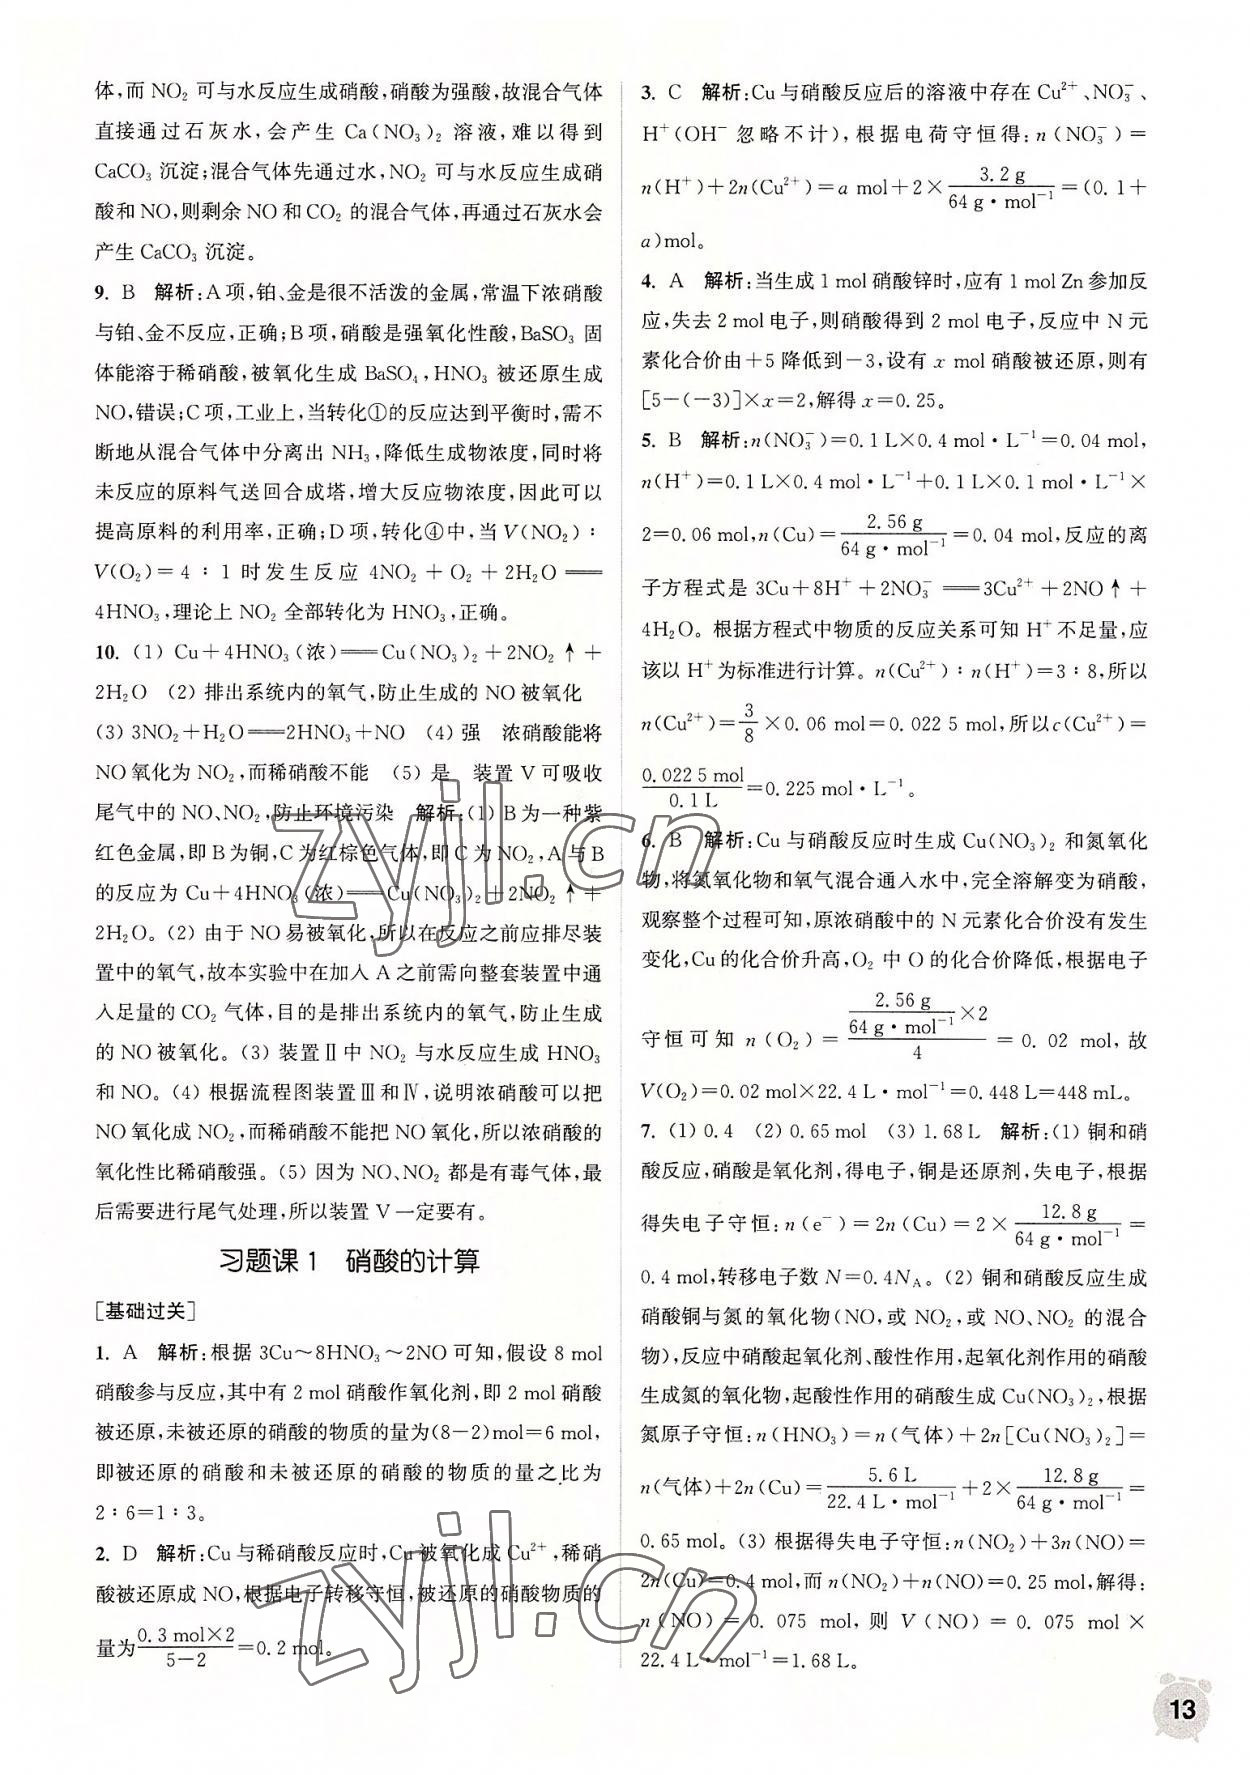 体,而 NO₂ 可与水反应生成硝酸,硝酸为强酸,故混合气体
直接通过石灰水,会产生 Ca(NO₃)₂ 溶液,难以得到
CaCO₃ 沉淀;混合气体先通过水,NO₂ 可与水反应生成硝
酸和 NO,则剩余 NO 和 CO₂ 的混合气体,再通过石灰水会
产生 CaCO₃ 沉淀。
9. B 解析:A 项,铂、金是很不活泼的金属,常温下浓硝酸
与铂、金不反应,正确;B 项,硝酸是强氧化性酸,BaSO₃ 固
体能溶于稀硝酸,被氧化生成 BaSO₄,HNO₃ 被还原生成
NO,错误;C 项,工业上,当转化①的反应达到平衡时,需不
断地从混合气体中分离出 NH₃,降低生成物浓度,同时将
未反应的原料气送回合成塔,增大反应物浓度,因此可以
提高原料的利用率,正确;D 项,转化④中,当 V(NO₂)∶
V(O₂)=4∶1 时发生反应 4NO₂+O₂+2H₂O══
4HNO₃,理论上 NO₂ 全部转化为 HNO₃,正确。
10. (1) Cu+4HNO₃(浓)══Cu(NO₃)₂+2NO₂↑+
2H₂O (2) 排出系统内的氧气,防止生成的 NO 被氧化
(3) 3NO₂+H₂O══2HNO₃+NO (4) 强 浓硝酸能将
NO 氧化为 NO₂,而稀硝酸不能 (5) 是 装置 V 可吸收
尾气中的 NO、NO₂,防止环境污染 解析:(1) B 为一种紫
红色金属,即 B 为铜,C 为红棕色气体,即 C 为 NO₂,A 与 B
的反应为 Cu+4HNO₃(浓)══Cu(NO₃)₂+2NO₂↑+
2H₂O。(2) 由于 NO 易被氧化,所以在反应之前应排尽装
置中的氧气,故本实验中在加入 A 之前需向整套装置中通
入足量的 CO₂ 气体,目的是排出系统内的氧气,防止生成
的 NO 被氧化。(3) 装置Ⅱ中 NO₂ 与水反应生成 HNO₃
和 NO。(4) 根据流程图装置Ⅲ和Ⅳ,说明浓硝酸可以把
NO 氧化成 NO₂,而稀硝酸不能把 NO 氧化,所以浓硝酸的
氧化性比稀硝酸强。(5) 因为 NO、NO₂ 都是有毒气体,最
后需要进行尾气处理,所以装置 V 一定要有。
习题课 1 硝酸的计算
[基础过关]
1. A 解析:根据 3Cu~8HNO₃~2NO 可知,假设 8 mol
硝酸参与反应,其中有 2 mol 硝酸作氧化剂,即 2 mol 硝酸
被还原,未被还原的硝酸的物质的量为(8-2)mol=6 mol,
即被还原的硝酸和未被还原的硝酸的物质的量之比为
2∶6=1∶3。
2. D 解析:Cu 与稀硝酸反应时,Cu 被氧化成 Cu²⁺,稀硝
酸被还原成 NO,根据电子转移守恒,被还原的硝酸物质的
量为 (0.3 mol×2)/(5-2)=0.2 mol。
3. C 解析:Cu 与硝酸反应后的溶液中存在 Cu²⁺、NO₃⁻、
H⁺(OH⁻ 忽略不计),根据电荷守恒得:n(NO₃⁻)=
n(H⁺)+2n(Cu²⁺)=a mol+2×(3.2 g)/(64 g·mol⁻¹)=(0.1+
a)mol。
4. A 解析:当生成 1 mol 硝酸锌时,应有 1 mol Zn 参加反
应,失去 2 mol 电子,则硝酸得到 2 mol 电子,反应中 N 元
素化合价由+5 降低到-3,设有 x mol 硝酸被还原,则有
[5-(-3)]×x=2,解得 x=0.25。
5. B 解析:n(NO₃⁻)=0.1 L×0.4 mol·L⁻¹=0.04 mol,
n(H⁺)=0.1 L×0.4 mol·L⁻¹+0.1 L×0.1 mol·L⁻¹×
2=0.06 mol,n(Cu)=(2.56 g)/(64 g·mol⁻¹)=0.04 mol,反应的离
子方程式是 3Cu+8H⁺+2NO₃⁻══3Cu²⁺+2NO↑+
4H₂O。根据方程式中物质的反应关系可知 H⁺ 不足量,应
该以 H⁺ 为标准进行计算。n(Cu²⁺)∶n(H⁺)=3∶8,所以
n(Cu²⁺)=3/8×0.06 mol=0.022 5 mol,所以 c(Cu²⁺)=
(0.022 5 mol)/(0.1 L)=0.225 mol·L⁻¹。
6. B 解析:Cu 与硝酸反应时生成 Cu(NO₃)₂ 和氮氧化
物,将氮氧化物和氧气混合通入水中,完全溶解变为硝酸,
观察整个过程可知,原浓硝酸中的 N 元素化合价没有发生
变化,Cu 的化合价升高,O₂ 中 O 的化合价降低,根据电子
守恒可知 n(O₂)=((2.56 g)/(64 g·mol⁻¹)×2)/4=0.02 mol,故
V(O₂)=0.02 mol×22.4 L·mol⁻¹=0.448 L=448 mL。
7. (1) 0.4 (2) 0.65 mol (3) 1.68 L 解析:(1) 铜和硝
酸反应,硝酸是氧化剂,得电子,铜是还原剂,失电子,根据
得失电子守恒:n(e⁻)=2n(Cu)=2×(12.8 g)/(64 g·mol⁻¹)=
0.4 mol,转移电子数 N=0.4N_A。(2) 铜和硝酸反应生成
硝酸铜与氮的氧化物(NO,或 NO₂,或 NO、NO₂ 的混合
物),反应中硝酸起氧化剂、酸性作用,起氧化剂作用的硝酸
生成氮的氧化物,起酸性作用的硝酸生成 Cu(NO₃)₂,根据
氮原子守恒:n(HNO₃)=n(气体)+2n[Cu(NO₃)₂]=
n(气体)+2n(Cu)=(5.6 L)/(22.4 L·mol⁻¹)+2×(12.8 g)/(64 g·mol⁻¹)=
0.65 mol。(3) 根据得失电子守恒:n(NO₂)+3n(NO)=
2n(Cu)=0.4 mol,而 n(NO₂)+n(NO)=0.25 mol,解得:
n(NO)=0.075 mol,则 V(NO)=0.075 mol×
22.4 L·mol⁻¹=1.68 L。
13
zyjl.cn
zyjl.cn